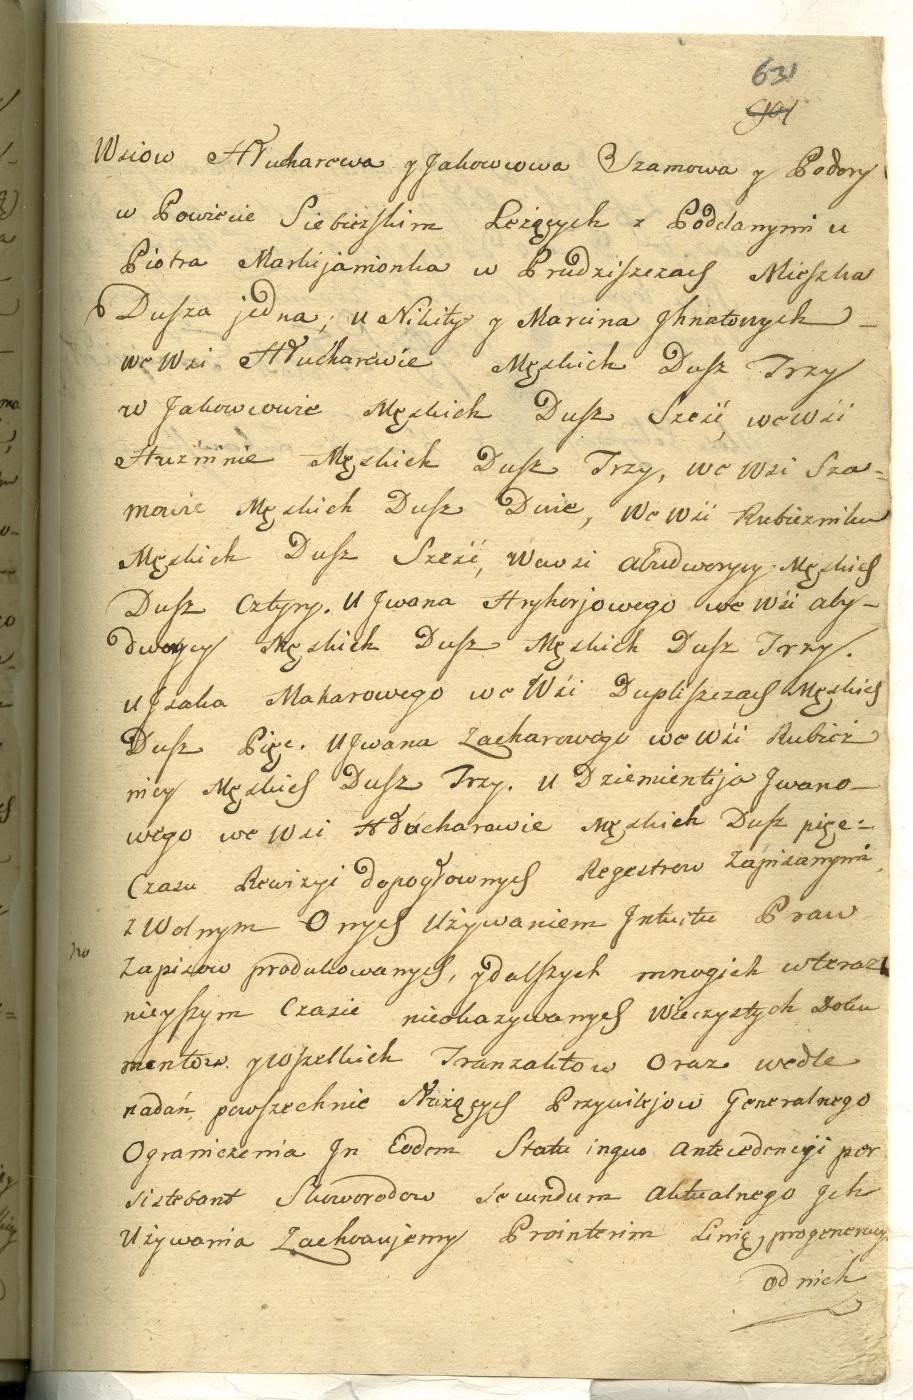 631
Wsiow Hłucharewa y Jakowcowa Szamowa y Podory
w Powiecie Siebieżskim Leżących z Poddanymi u
Piotra Markijanionka w Prudziszczach Mieszka
Dusza jedna; u Nikity y Marcina Jhnatowych –
we Wsi Hłucharewie Męskich Dusz Trzy
w Jakowcowie Męskich Dusz Sześć, we Wśi
Huzminie Męskich Dusz Trzy, we Wsi Sza=
mowie Męskich Dusz Dwie, We Wśi Rubiezniku
Męskich Dusz Sześć, Wewsi abudworycy Męskich
Dusz Cztyry. U Jwana Hryhorjowego we Wśi aby–
dworycy Męskich Dusz Męskich Dusz Trzy.
u Jzaka Makarowego we Wśi Dupliszczach Męskich
Dusz Pięc. U Jwana Zacharowego we Wśi Rubież
nicy Męskich Dusz Trzy. U Dziemientija Jwano–
wego we Wsi Hłucharawie Męskich Dusz pięc=
Czasu Rewizyi dopogłownych Regestrow Zapisanymi
z Wolnym Onych Używaniem Jntuitu Praw
no
Zapisow produkowanych, y dalszych mnogich w teraz
nieyszym Czasie nieokazywanych Wieczystych Doku
mentow. y wszelkich Tranzaktow Oraz wedle
nadań, powszechnie Służących Przywilejow Generalnego
Ograniczenia Jn Eodem Statu inquo antecedencyi per
sistebant Skoworodow Secundum aktualnego Jch
Używania Zachowujemy Prointerim Linię, progeneracy
od nich